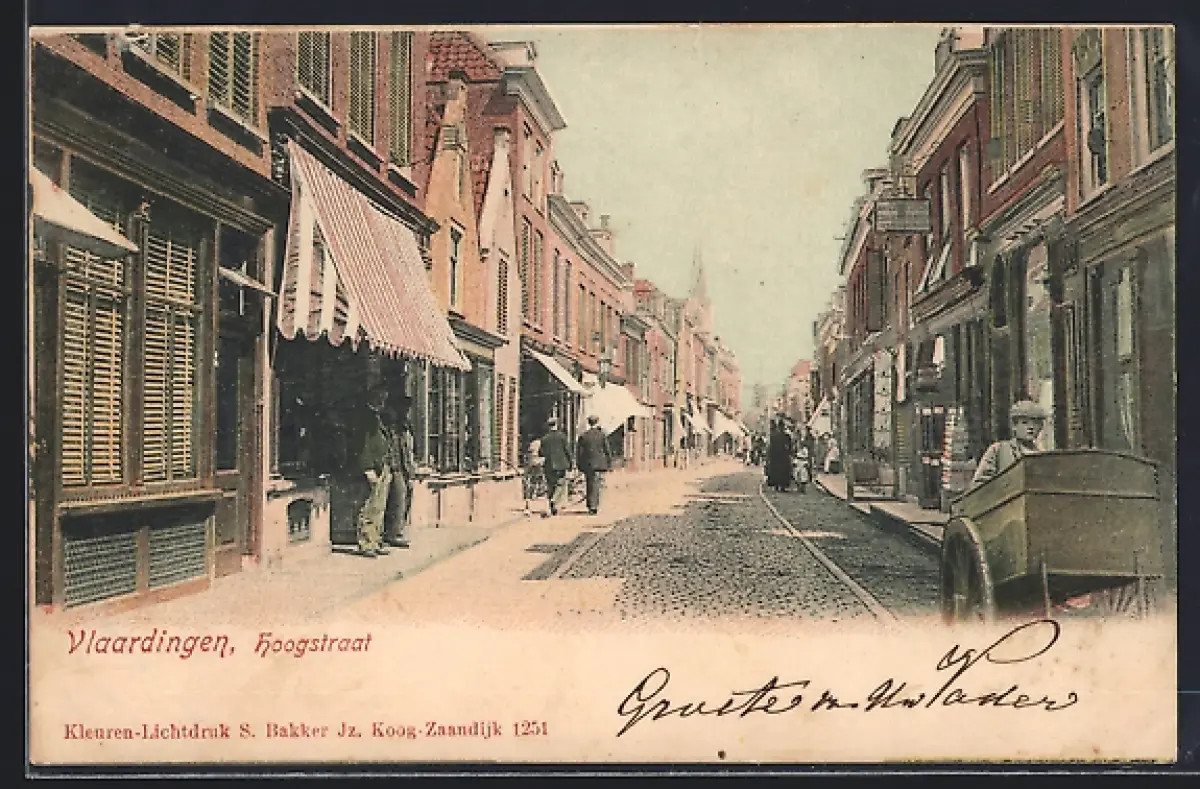 Vlaardingen, Hoogstraat
Groeten van Uw Vader
Kleuren-Lichtdruk S. Bakker Jz. Koog-Zaandijk 1251